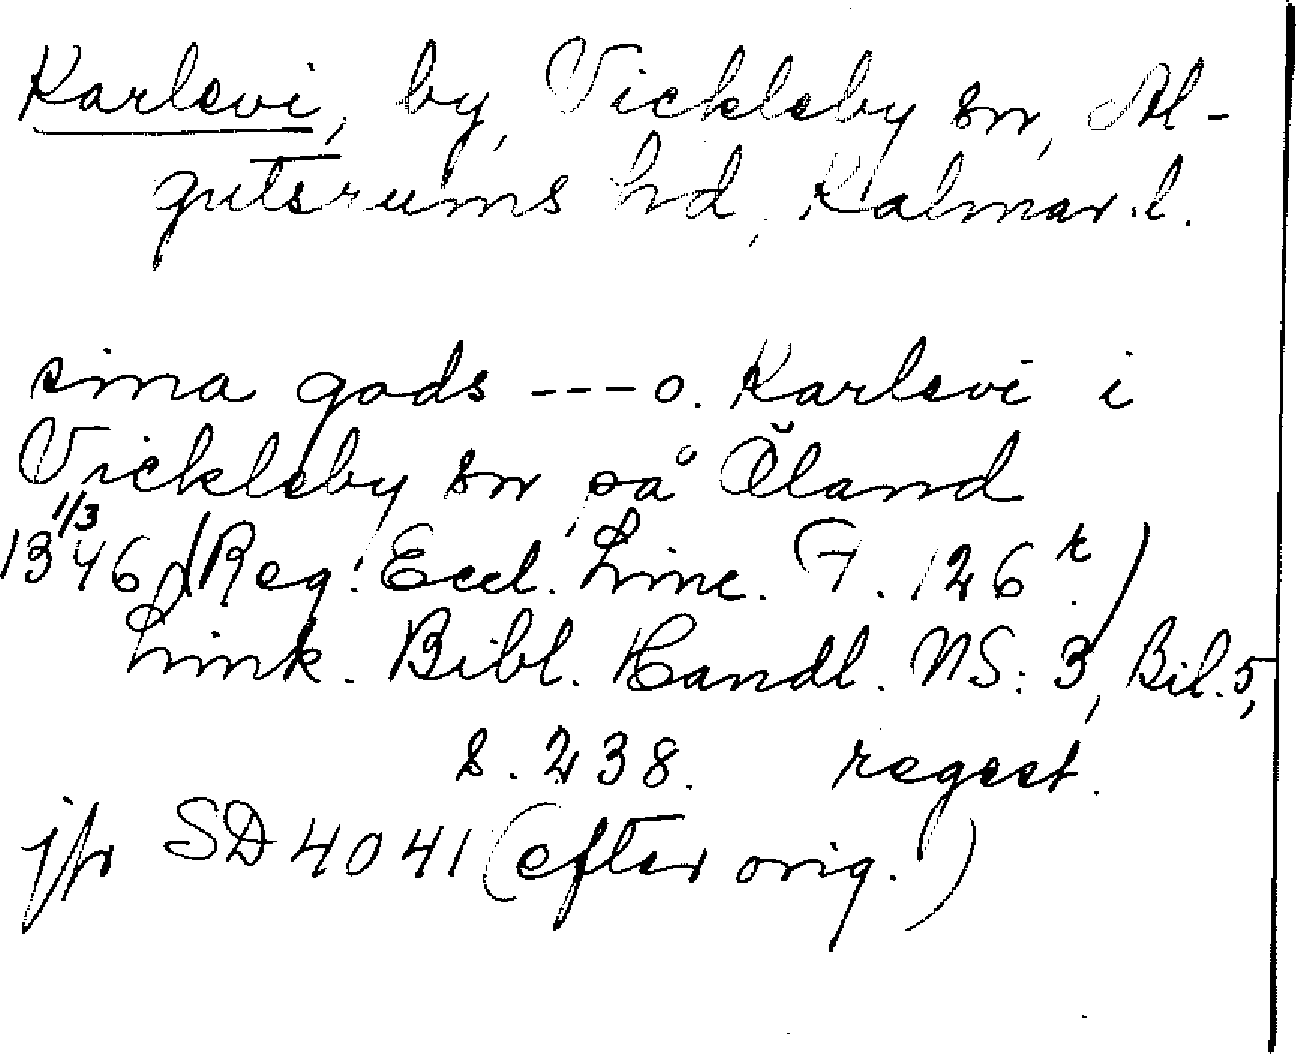 Karlevi, by, Vickleby sn, Al-
gutsrums hd, Kalmar l.
sina gods --- o. Karlevi i
Vickleby sn på Öland
1/3
1346 (Reg. Eccl. Linc. F. 126 r.)
Link. Bibl. Handl. NS: 3, Bil. 5,
s. 238. regest.
jfr SD 4041 (efter orig.)